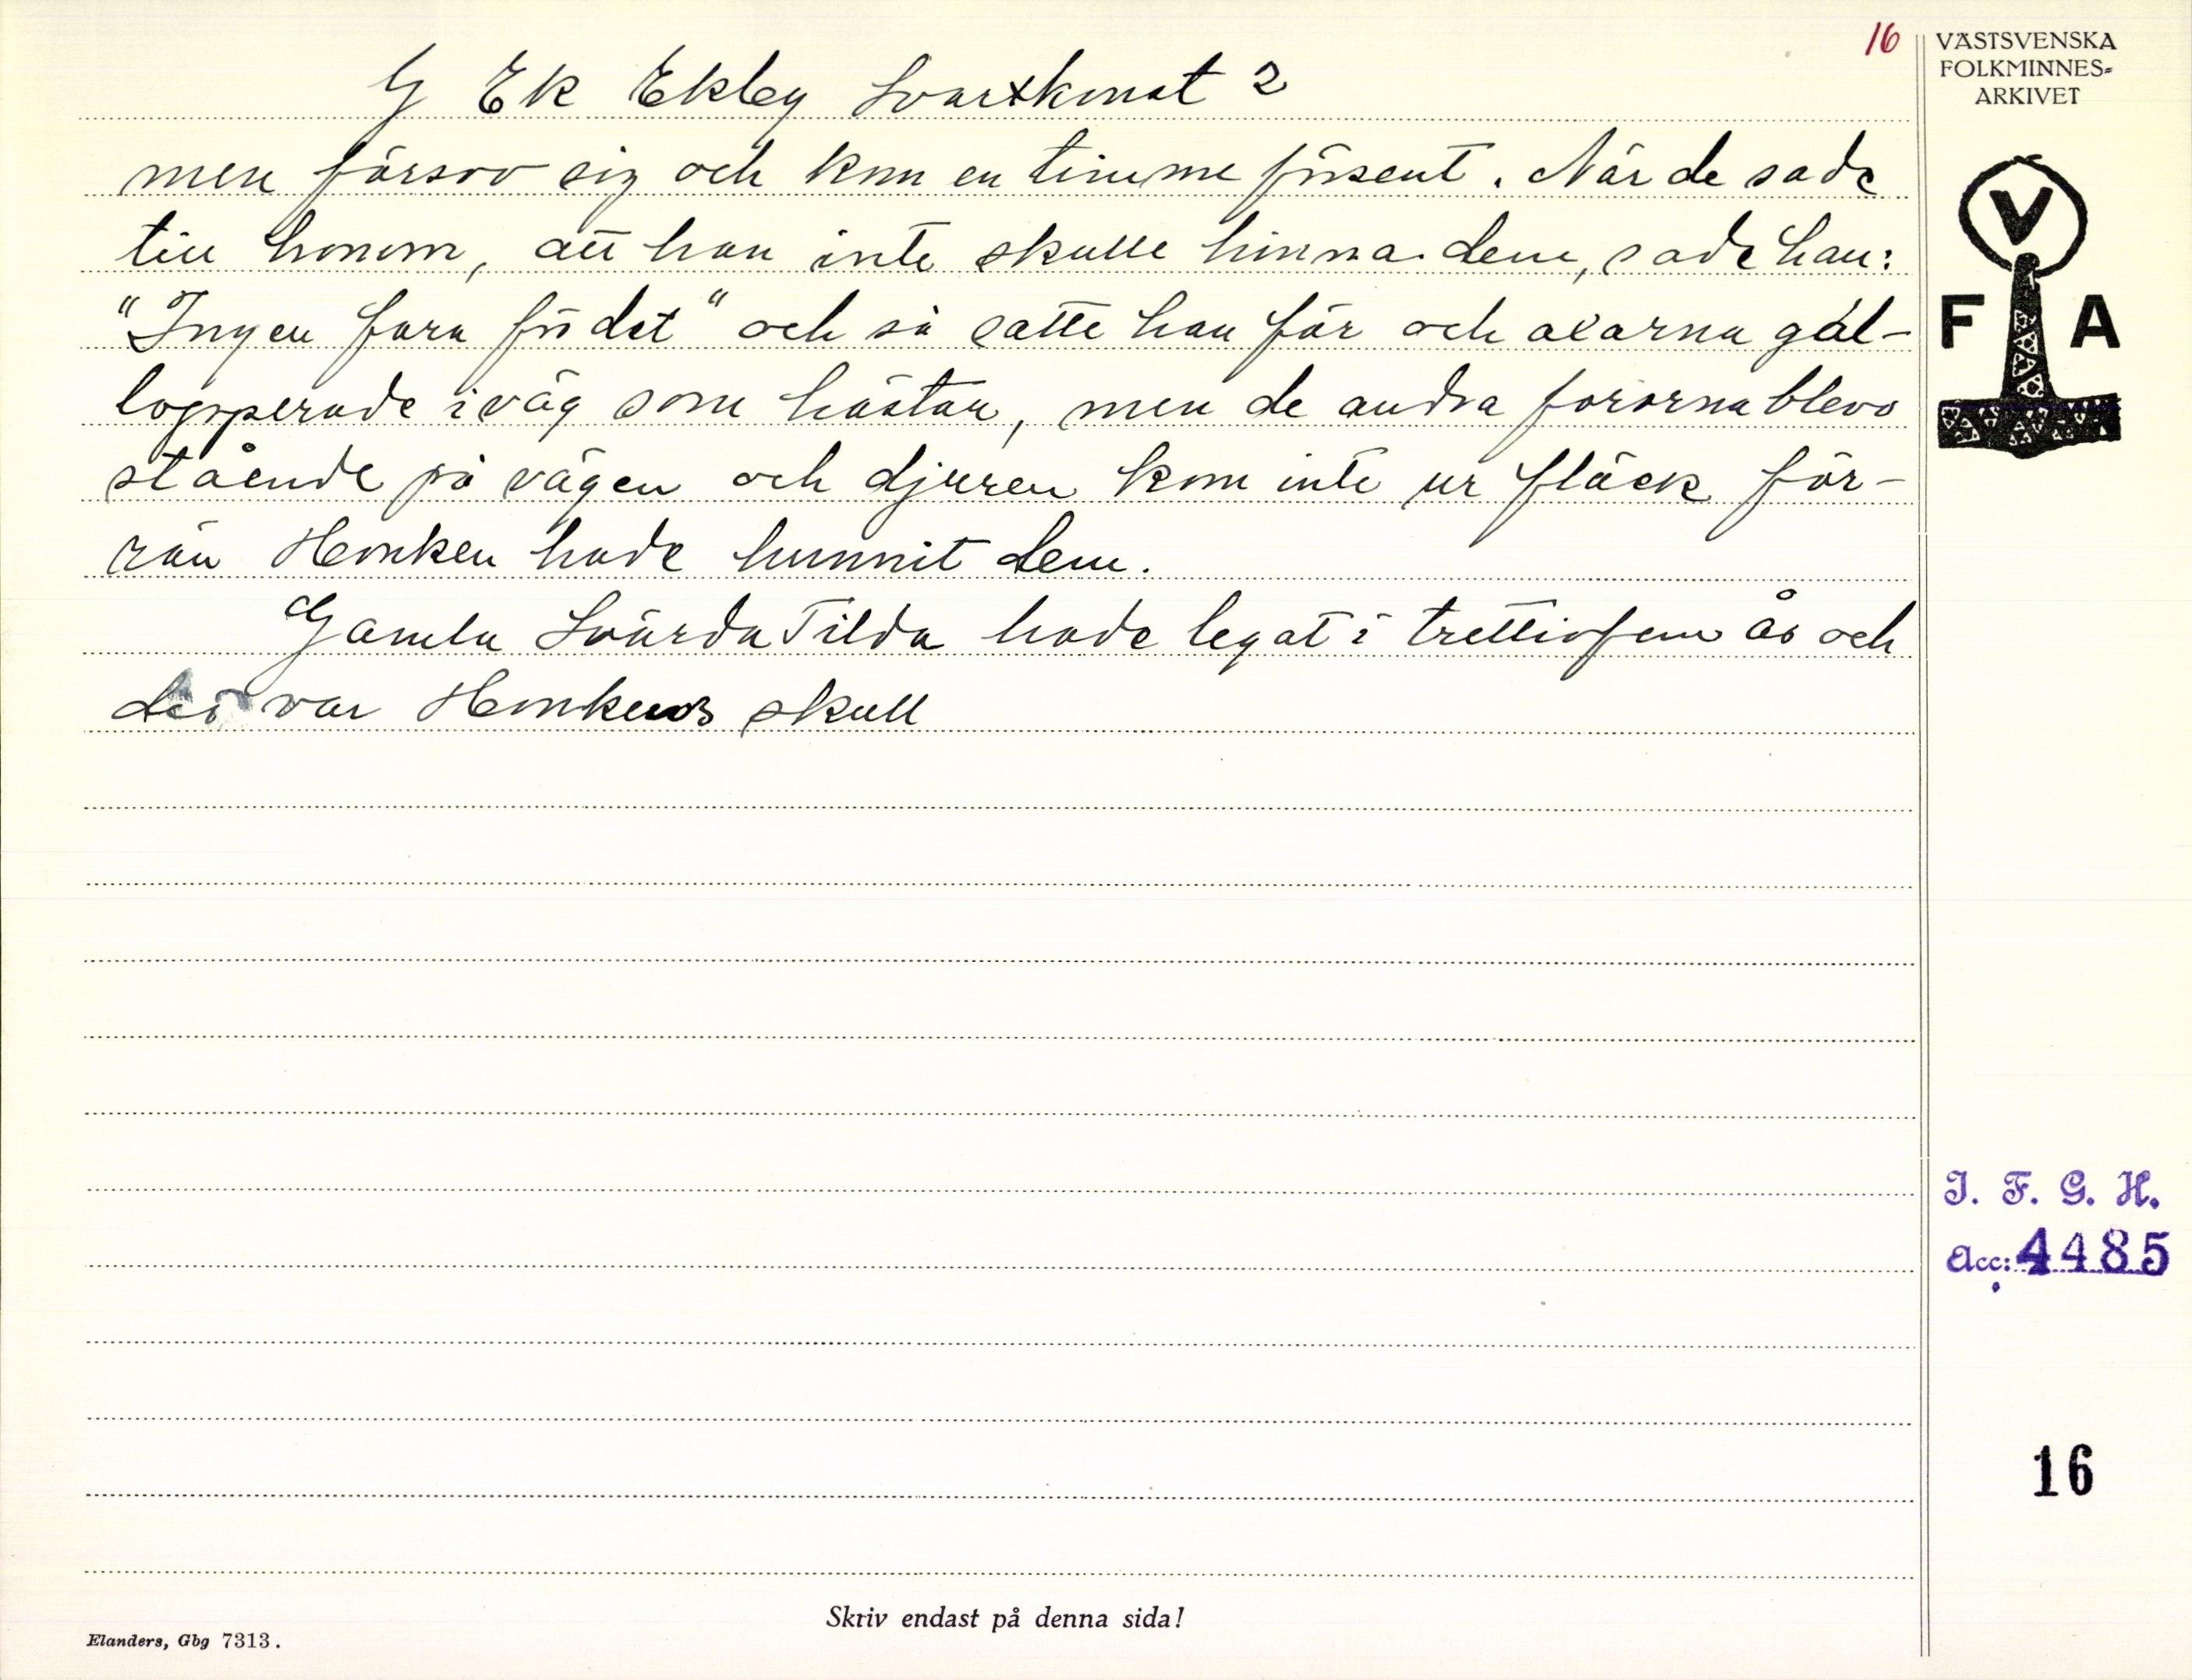 16
VÄSTSVENSKA
FOLKMINNES=
ARKIVET
G Ek Ekby Svartkonst 2
men försov sig och kom en timme försent. När de sade
till honom, att han inte skulle hinna dem, sade han:
"Ingen fara för det" och så satte han för och oxarna gal-
lopperade iväg som hästar, men de andra fororna blevo
stående på vägen och djuren kom inte ur fläck för-
rän Henken hade hunnit dem.
Gamla Svärda Tilda hade legat i trettiofem år och
det var Henkens skull
V
F A
I. F. G. H.
Acc: 4485
16
Skriv endast på denna sida!
Elanders, Gbg 7313.